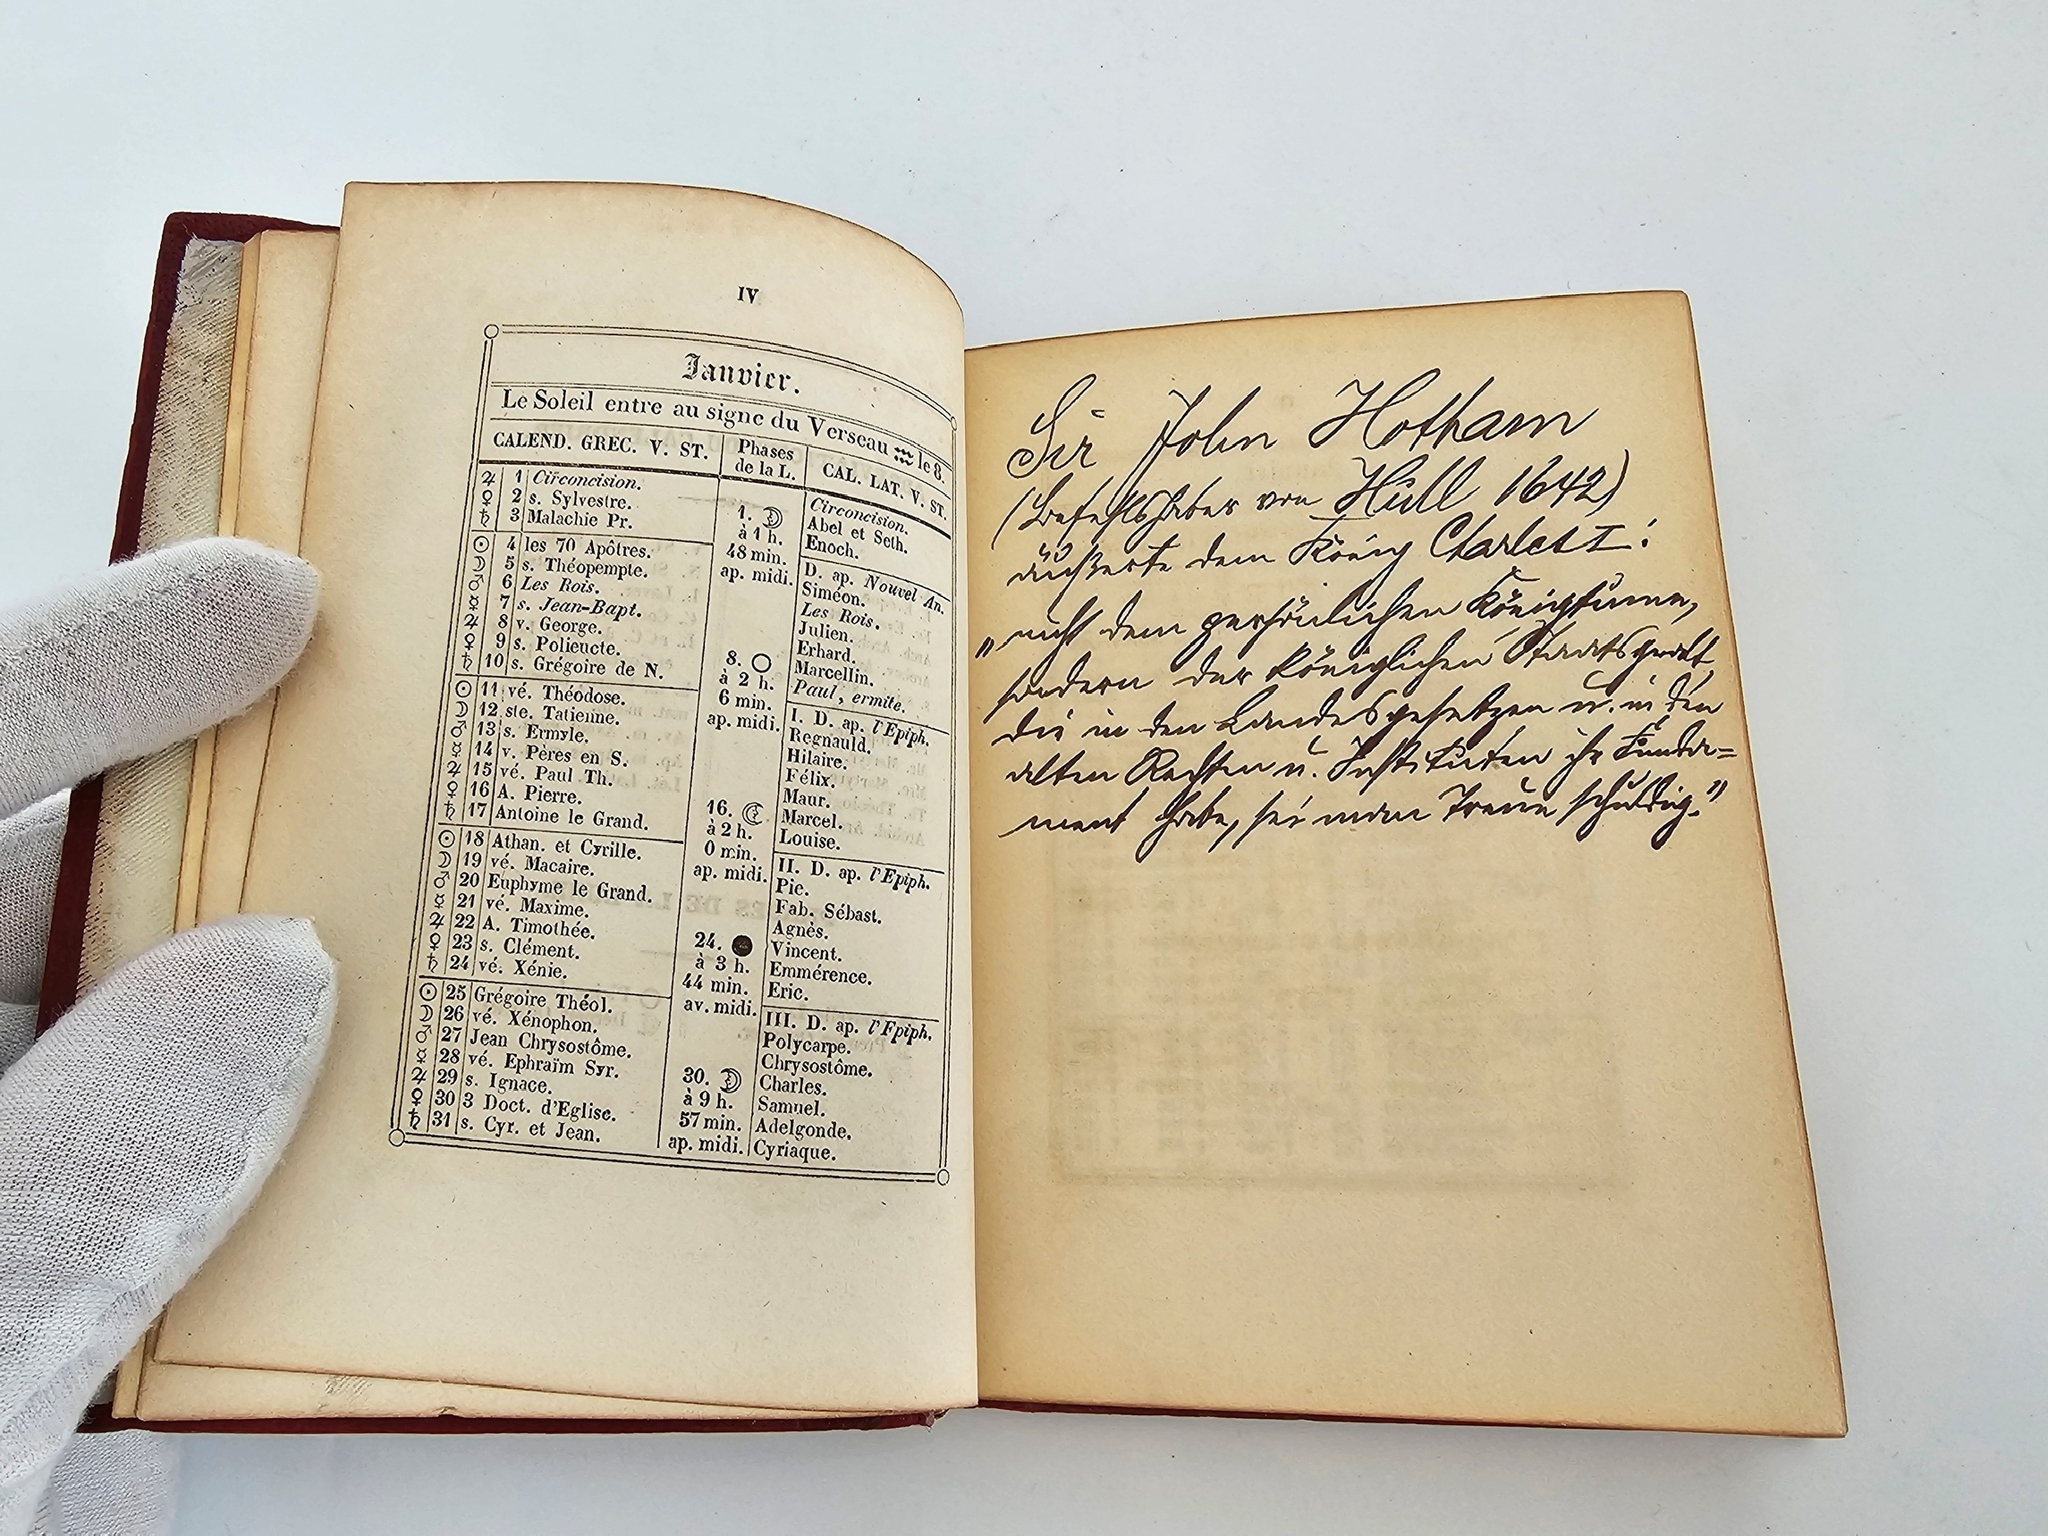 IV
Janvier.
Le Soleil entre au signe du Verseau ♒ le 8.
CALEND. GREC. V. ST. Phases de la L. CAL. LAT. V. ST.
♃ 1 Circoncision.
♀ 2 s. Sylvestre.
♄ 3 Malachie Pr.
☉ 4 les 70 Apôtres.
☽ 5 s. Théopempte.
♂ 6 Les Rois.
☿ 7 s. Jean-Bapt.
♃ 8 v. George.
♀ 9 s. Polieucte.
♄ 10 s. Grégoire de N.
☉ 11 vé. Théodose.
☽ 12 ste. Tatienne.
♂ 13 s. Ermyle.
☿ 14 v. Pères en S.
♃ 15 vé. Paul Th.
♀ 16 A. Pierre.
♄ 17 Antoine le Grand.
☉ 18 Athan. et Cyrille.
☽ 19 vé. Macaire.
♂ 20 Euphyme le Grand.
☿ 21 vé. Maxime.
♃ 22 A. Timothée.
♀ 23 s. Clément.
♄ 24 vé. Xénie.
☉ 25 Grégoire Théol.
☽ 26 vé. Xénophon.
♂ 27 Jean Chrysostôme.
☿ 28 vé. Ephraïm Syr.
♃ 29 s. Ignace.
♀ 30 3 Doct. d'Eglise.
♄ 31 s. Cyr. et Jean.
1. ☽
à 1 h.
48 min.
ap. midi.
8. ○
à 2 h.
6 min.
ap. midi.
16. ☾
à 2 h.
0 min.
ap. midi.
24. ●
à 3 h.
44 min.
av. midi.
30. ☽
à 9 h.
57 min.
ap. midi.
Circoncision.
Abel et Seth.
Enoch.
D. ap. Nouvel An.
Siméon.
Les Rois.
Julien.
Erhard.
Marcellin.
Paul, ermite.
I. D. ap. l'Epiph.
Regnauld.
Hilaire.
Félix.
Maur.
Marcel.
Louise.
II. D. ap. l'Epiph.
Pie.
Fab. Sébast.
Agnès.
Vincent.
Emmérence.
Eric.
III. D. ap. l'Epiph.
Polycarpe.
Chrysostôme.
Charles.
Samuel.
Adelgonde.
Cyriaque.
Sir John Hotham
(Befehlshaber von Hull 1642)
äußerte dem König Charles I:
"nicht dem persönlichen Königtume,
sondern der königlichen Staatsgewalt,
die in den Landesgesetzen u. in den
alten Rechten u. Instituten ihr Funda=
ment habe, sei man Treue schuldig."